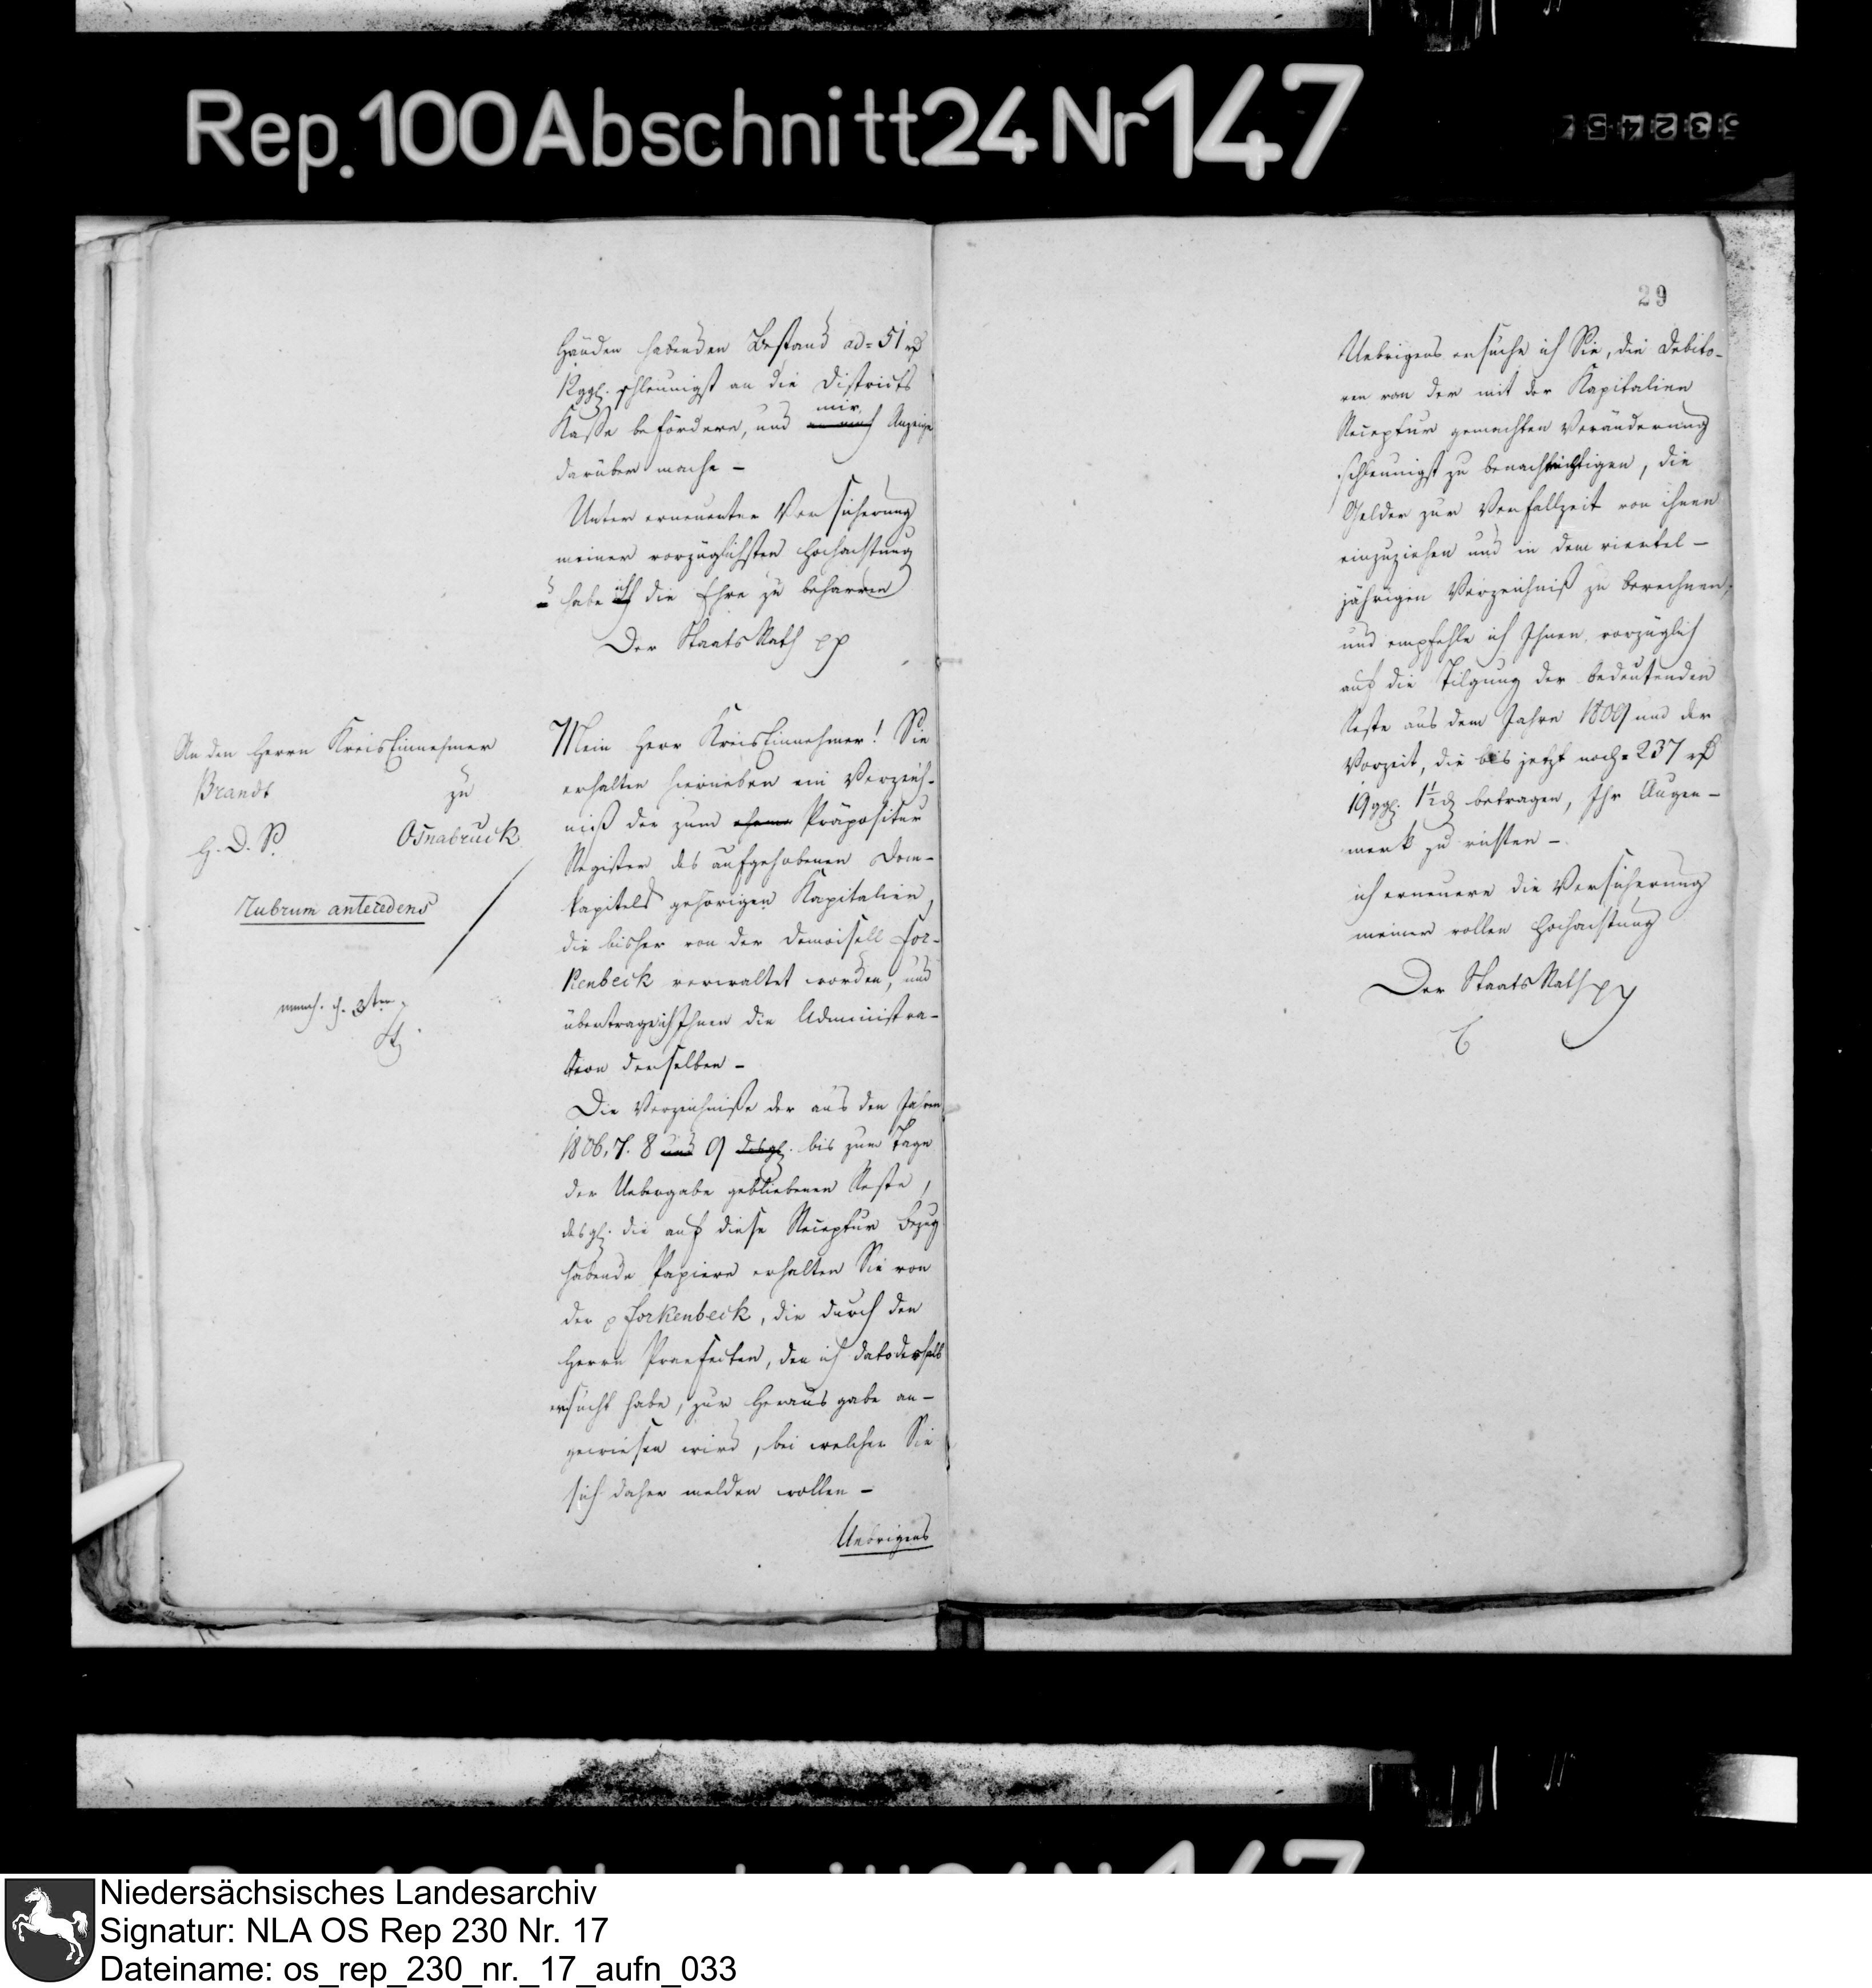 Rep. 100 Abschnitt 24 Nr 147
Händen habenden Bestand ad = 51 rℓ
12 ggl. schleunigst an die Districts
Kasse befördere, und mir Anzeige
darüber mache –
Unter erneuerter Versicherung
meiner vorzüglichsten Hochachtung
habe ich die Ehre zu beharren
Der StaatsRath pp
An den Herrn KreisEinnehmer
Brandt zu
Osnabruck
H. D. P.
Rubrum antecedens
Mein Herr KreisEinnehmer! Sie
erhalten hierneben ein Verzeich-
niß der zum Präpositur
Register des aufgehobenen Dom-
kapitels gehörigen Kapitalien,
die bisher von der Demoisell For-
kenbeck verwaltet worden, und
übertrage ich Ihnen die Administra-
tion derselben –
Die Verzeichniße der aus den Jahren
1806. 7. 8 und 9 desgl. bis zum Tage
der Uebergabe gebliebenen Reste,
desgl. die auf diese Receptur Bezug
habende Papiere erhalten Sie von
der p Forkenbeck, die durch den
Herrn Praefecten, den ich dato deshalb
ersucht habe, zur Herausgabe an-
gewiesen wird, bei welcher Sie
sich daher melden wollen –
Uebrigens
29
Uebrigens ersuche ich Sie, die Debito-
ren von der mit der Kapitalien
Receptur gemachten Veränderung
schleunigst zu benachrichtigen, die
Gelder zur Verfallzeit von ihnen
einzuziehen und in dem viertel-
jährigen Verzeichniß zu berechnen,
und empfehle ich Ihnen, vorzüglich
auf die Tilgung der bedeutenden
Reste aus dem Jahre 1809 und der
Vorzeit, die bis jetzt noch = 237 rℓ
19 ggl. 1½ ₰ betragen, Ihr Augen-
merk zu richten –
ich erneuere die Versicherung
meiner vollen Hochachtung
Der StaatsRath pp
Niedersächsisches Landesarchiv
Signatur: NLA OS Rep 230 Nr. 17
Dateiname: os_rep_230_nr._17_aufn_033